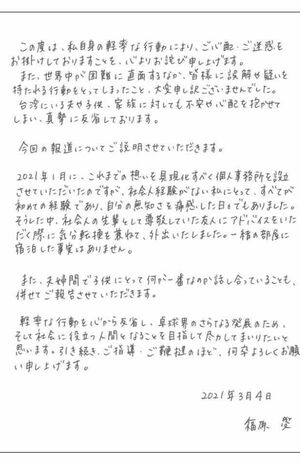 この度は、私自身の軽率な行動により、ご心配・ご迷惑を
お掛けしておりますことを、心よりお詫び申し上げます。
また、世界中が困難に直面するなか、皆様に誤解や疑いを
持たれる行動をとってしまったこと、大変申し訳ございませんでした。
台湾にいる夫や子供、家族に対しても不安や心配を抱かせて
しまい、真摯に反省しております。
今回の報道についてご説明させていただきます。
2021年1月に、これまでの想いを具現化すべく個人事務所を設立
させていただいたのですが、社会人経験がない私にとって、すべてが
初めての経験であり、自分の無知さを痛感した日々でもありました。
そうした中、社会人の先輩として尊敬していた友人にアドバイスをいた
だく際に気分転換を兼ねて、外出いたしました。一緒の部屋に
宿泊した事実はありません。
また、夫婦間で子供にとって何が一番なのか話し合っていることも、
併せてご報告させていただきます。
軽率な行動を心から反省し、卓球界のさらなる発展のため、
そして社会に役立つ人間となることを目指して尽力してまいりたいと
思います。引き続き、ご指導・ご鞭撻のほど、何卒よろしくお願
い申し上げます。
2021年3月4日
福原 愛